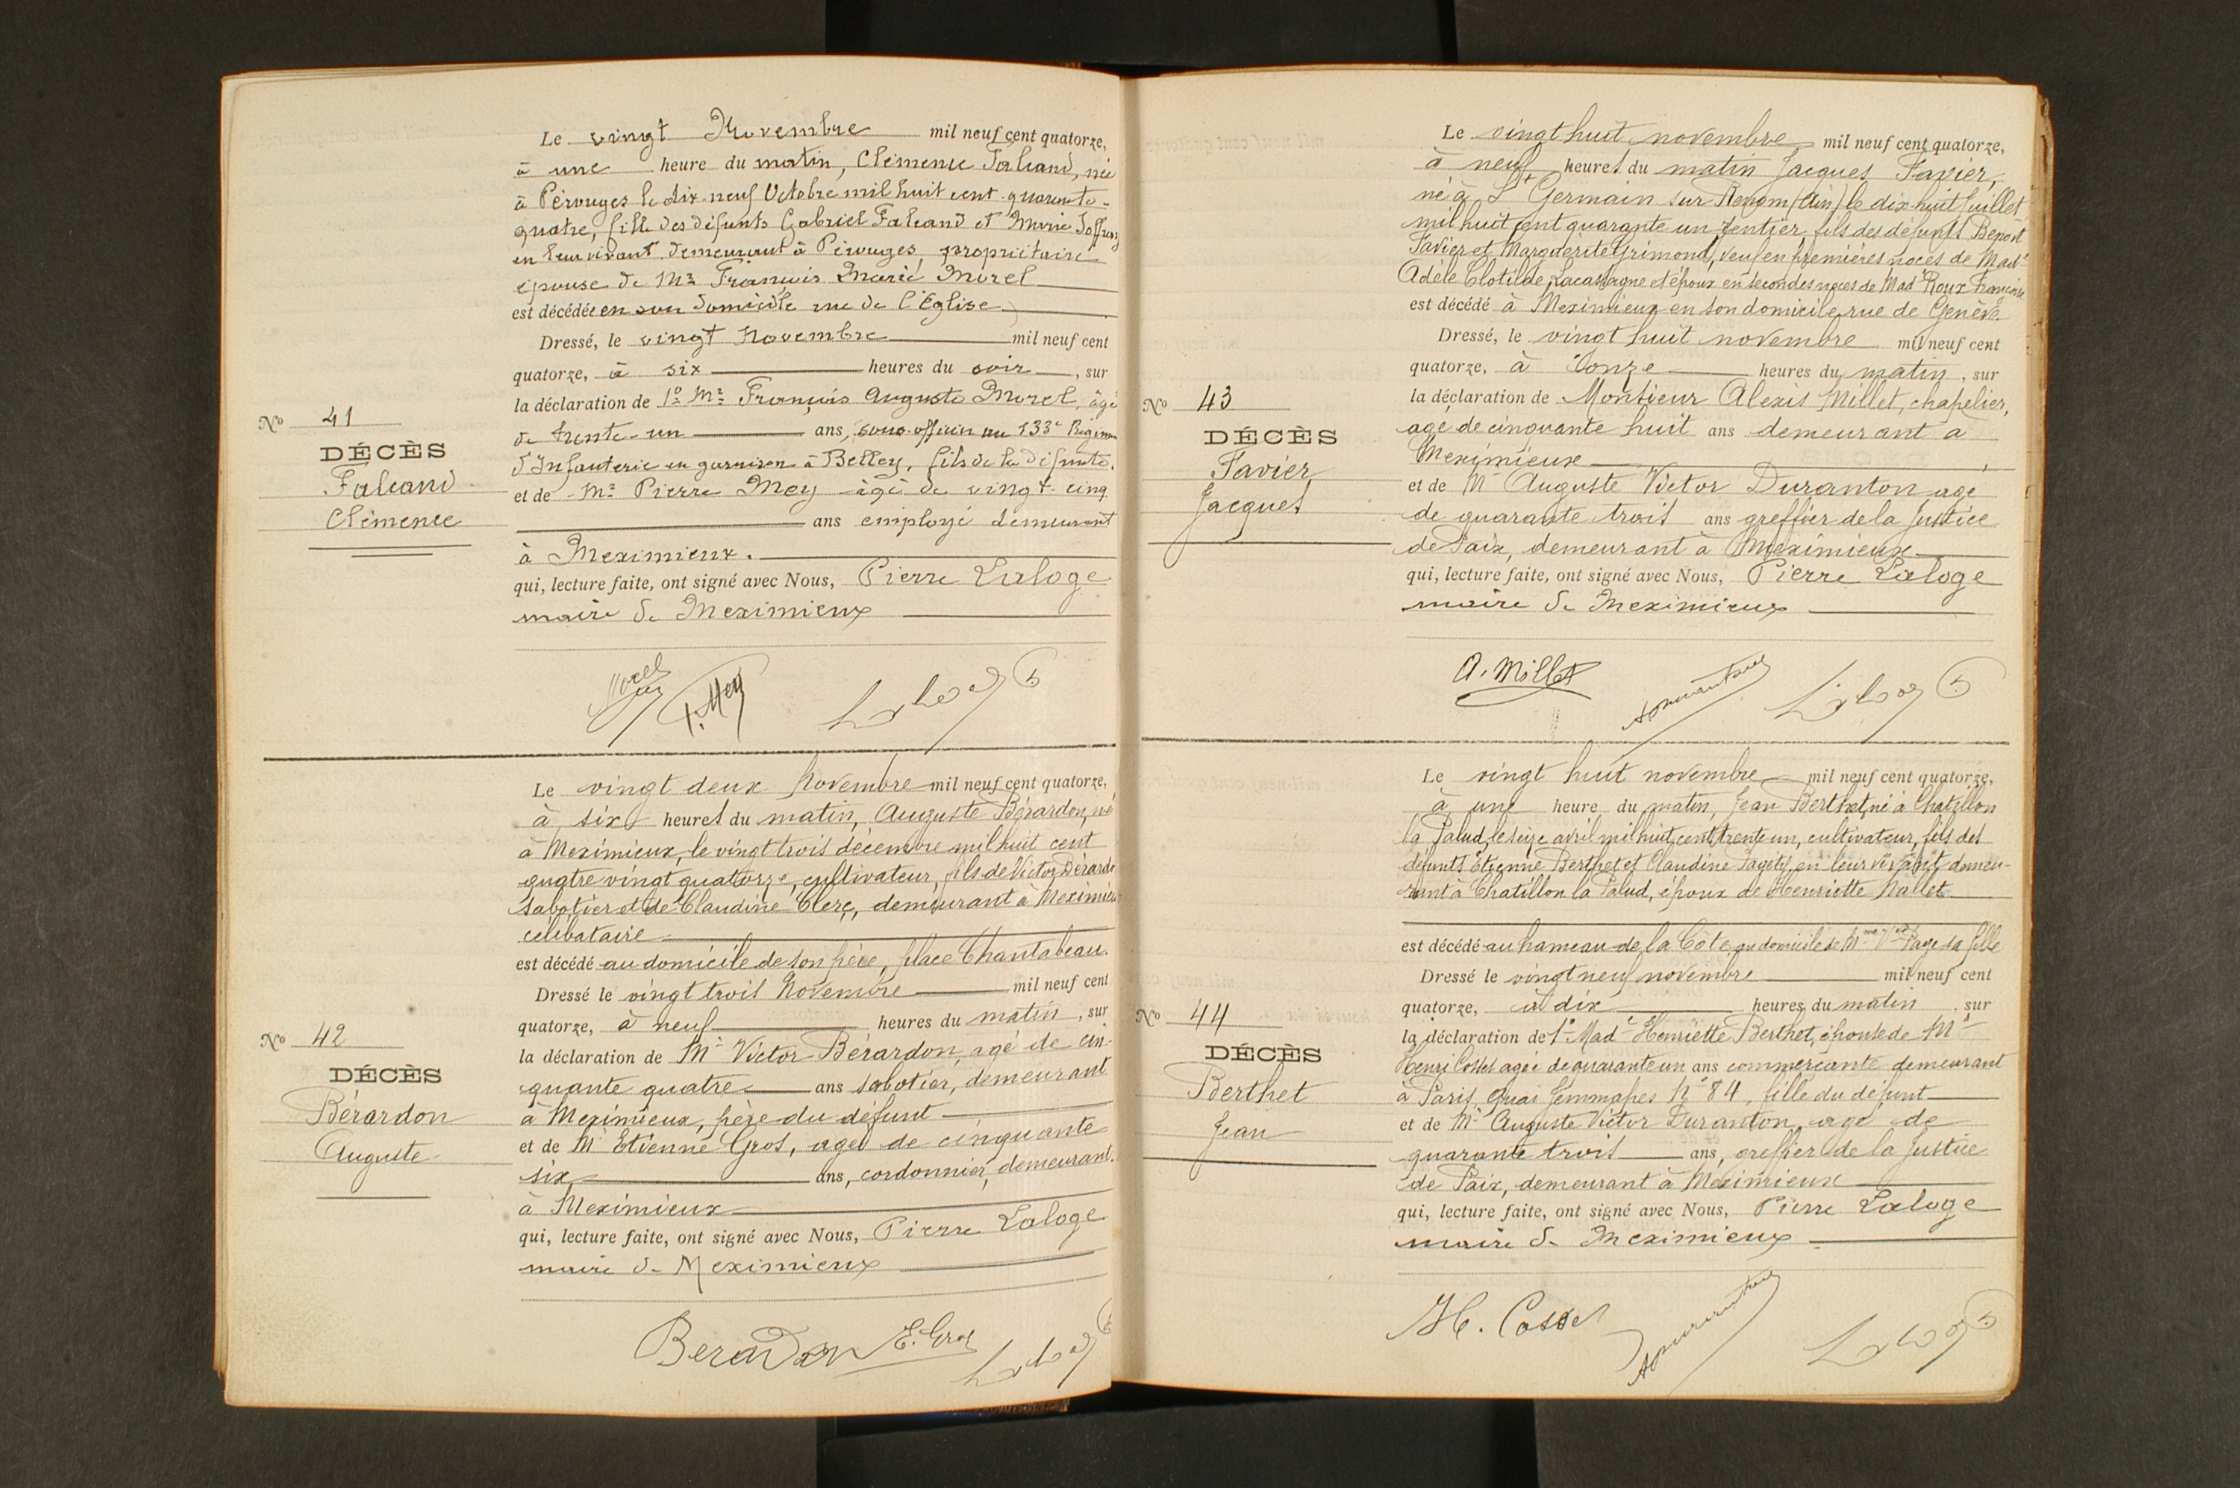 Le vingt Novembre mil neuf cent quatorze,
à une heure du matin, Clémence Falcand, née
à Pérouges le dix-neuf Octobre mil huit cent quarante-
quatre, fille des défunts Gabriel Falcand et Marie
en leur vivant demeurant à Pérouges, propriétaire
épouse de Mr François Marie Morel
est décédée en son domicile rue de l'Église
Dressé, le vingt Novembre mil neuf cent
quatorze, à six heures du soir, sur
la déclaration de 1º Mr François Auguste Morel, âgé
de trente-un ans, sous-officier au 133e Régimen
d'Infanterie en garnison à Belley, fils de la défunte,
et de Mr Pierre Mey âgé de vingt-cinq
ans employé demeurant
à Meximieux.
qui, lecture faite, ont signé avec Nous, Pierre Laloge
maire de Meximieux
Nº 41
DÉCÈS
Falcand
Clémence
Morel
P. Mey
Le vingt deux Novembre mil neuf cent quatorze,
à six heures du matin, Auguste Bérardon, né
à Meximieux, le vingt trois décembre mil huit cent
quatre vingt quatorze, cultivateur, fils de Victor Bérardo
sabotier et de Claudine Clerc, demeurant à Meximieu
célibataire
est décédé au domicile de son père, place Chantabeau.
Dressé le vingt trois Novembre mil neuf cent
quatorze, à neuf heures du matin, sur
la déclaration de Mr Victor Bérardon, agé de cin-
quante quatre ans sabotier, demeurant
à Meximieux, père du défunt
et de Mr Etienne Gros, agé de cinquante
six ans, cordonnier, demeurant
à Meximieux
qui, lecture faite, ont signé avec Nous, Pierre Laloge
maire de Meximieux
Nº 42
DÉCÈS
Bérardon
Auguste
Berardon E. Gros
Le vingt huit novembre mil neuf cent quatorze,
à neuf heures du matin Jacques Favier,
né à St Germain sur Renom (Ain) le dix huit Juillet
mil huit cent quarante un rentier, fils des défunts Benoit
Favier et Marguerite Grimond, veuf en premières noces de Made
Adèle Clotilde Lacassagne et époux en secondes noces de Made Roux Françoise
est décédé à Meximieux en son domicile rue de Genève
Dressé, le vingt huit novembre mil neuf cent
quatorze, à onze heures du matin, sur
la déclaration de Monsieur Alexis Millet, chapelier,
agé de cinquante huit ans demeurant à
Meximieux
et de Mr Auguste Victor Duranton agé
de quarante trois ans greffier de la Justice
de Paix, demeurant à Meximieux
qui, lecture faite, ont signé avec Nous, Pierre Laloge
maire de Meximieux
Nº 43
DÉCÈS
Favier
Jacques
A. Millet
Le vingt huit novembre mil neuf cent quatorze,
à une heure du matin, Jean Berthet, né à Chatillon
la Palud, le seize avril mil huit cent trente un, cultivateur, fils des
défunts Etienne Berthet et Claudine Paget, en leur vivant demeu-
rant à Chatillon la Palud, époux de Henriette Nallet
est décédé au hameau de la Côte, au domicile de Mme Vve Page sa fille
Dressé le vingt neuf novembre mil neuf cent
quatorze, à dix heures du matin, sur
la déclaration de 1º Made Henriette Berthet, épouse de Mr
Henri Cosset agée de quarante un ans commerçante demeurant
à Paris, quai Jemmapes Nº 84, fille du défunt
et de Mr Auguste Victor Duranton agé de
quarante trois ans, greffier de la Justice
de Paix, demeurant à Meximieux
qui, lecture faite, ont signé avec Nous, Pierre Laloge
maire de Meximieux
Nº 44
DÉCÈS
Berthet
Jean
H. Cosset